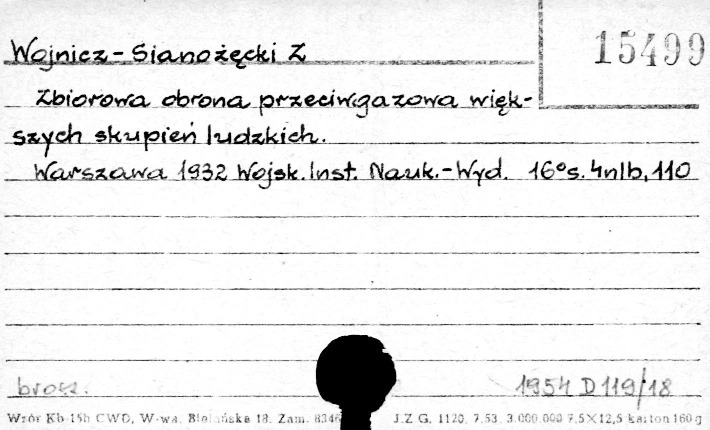 15499
Wojnicz-Sianożęcki Z
Zbiorowa obrona przeciwgazowa więk-
szych skupień ludzkich.
Warszawa 1932 Wojsk. Inst. Nauk.-Wyd. 16° s. 4nlb, 110
brosz. 1954 D 119/18
Wzór Kb-15b CWD, W-wa, Bielańska 18. Zam. 8346 J.Z.G. 1120. 7.53. 3.000.000 7,5×12,5 karton 160 g